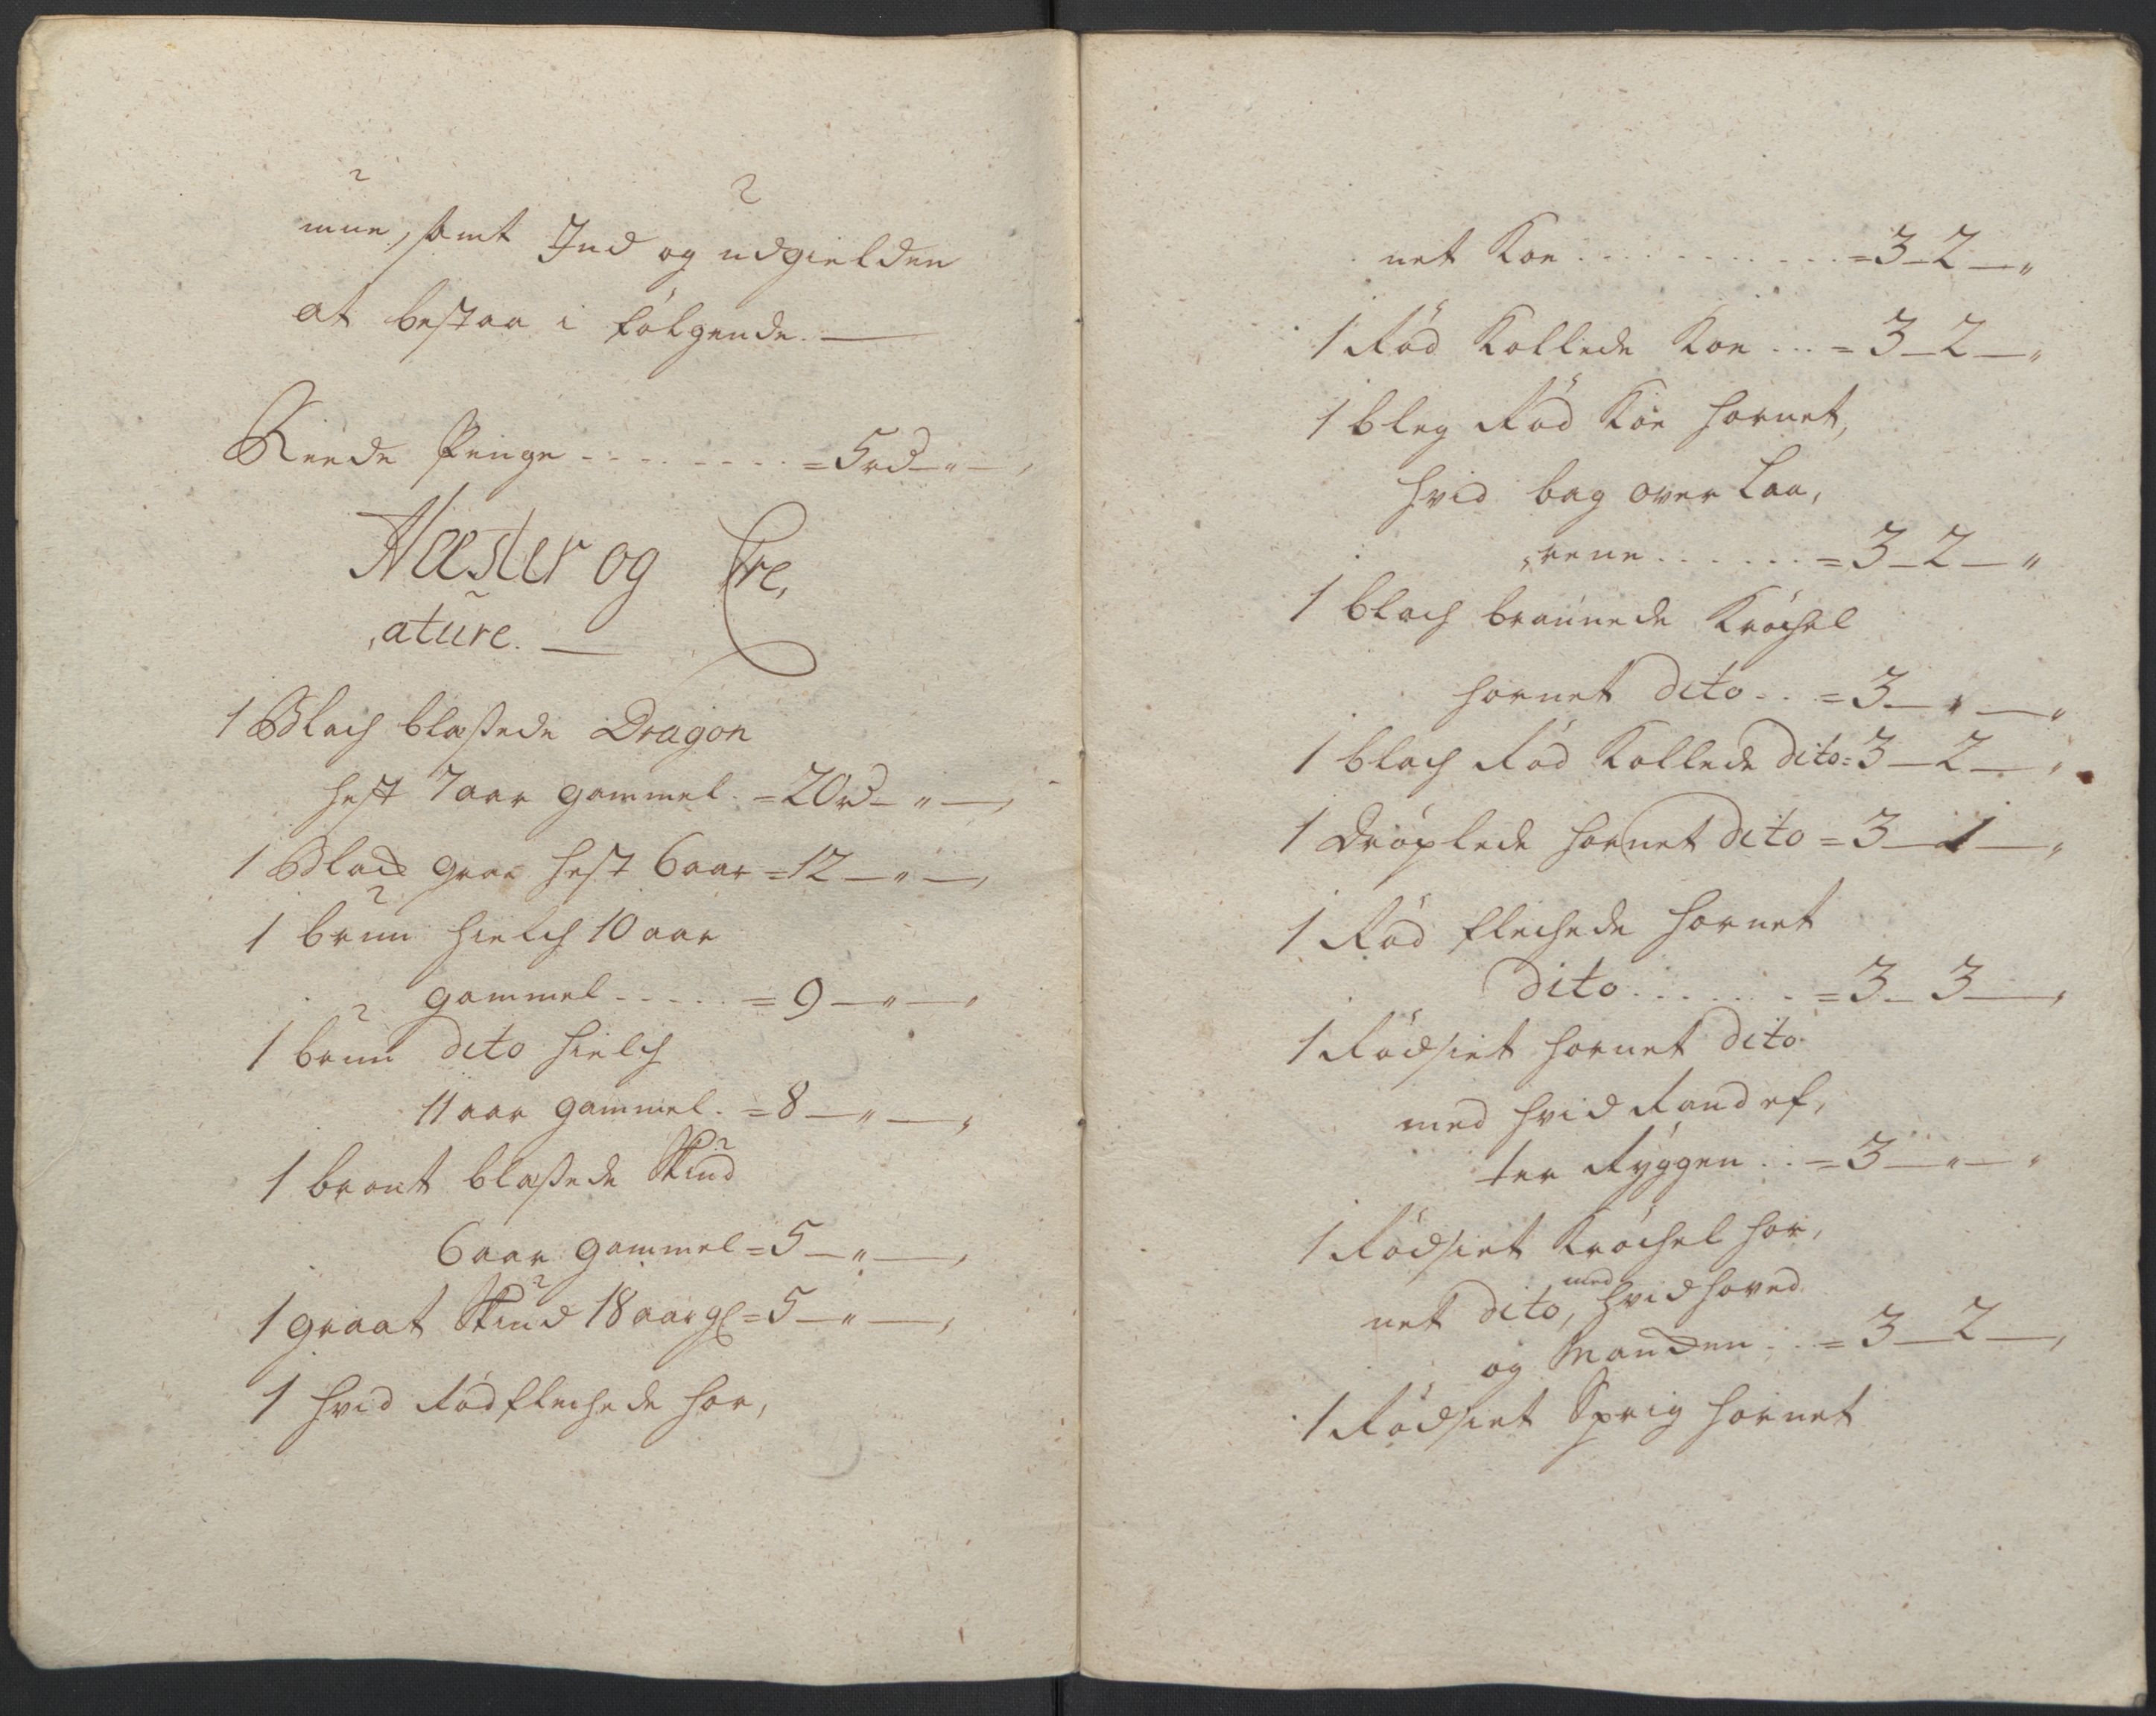 mue, samt Ind og udgielden
at bestaa i følgende. —
Reede Penge - - - - - - - = 5 rd — " — ,
Heester og Cre,
,ature. —
1 Blach blæssede Dragon
hest 7 aar gammel. = 20 rd — " — ,
1 Blach graae hest 6 aar = 12 — " — ,
1 brun hielch 10 aar
gammel - - - - - = 9 — " — "
1 brun dito hielch
11 aar gammel. = 8 — " — ,
1 brunt blæssede Stud
6 aar gammel = 5 — " — ,
1 graat Stud 18 aar gl = 5 — " — ,
1 hvid Rød flechede hor,
net Koe . . . . . . . . . . = 3 — 2 — "
1 Rød Kollede Koe . . . = 3 — 2 — "
1 bleg Rød Koe hornet,
hvid bag over Laa,
,rene . . . . . . = 3 — 2 — "
1 blach braunede Krøchel
hornet dito . . = 3 — " — "
1 blach Rød Kollede dito = 3 — 2 — "
1 Drøplede hornet dito = 3 — 1 — ,
1 Rød flechede hornet
dito . . . . . . . = 3 — 3 — ,
1 Rødsiet hornet dito
med hvid Rand ef,
ter Ryggen . . = 3 — " — "
1 Rødsiet Krøchel hor,
net dito, med hvid hoved
og Manden . . = 3 — 2 — ,
1 Rødsiet Sprig hornet